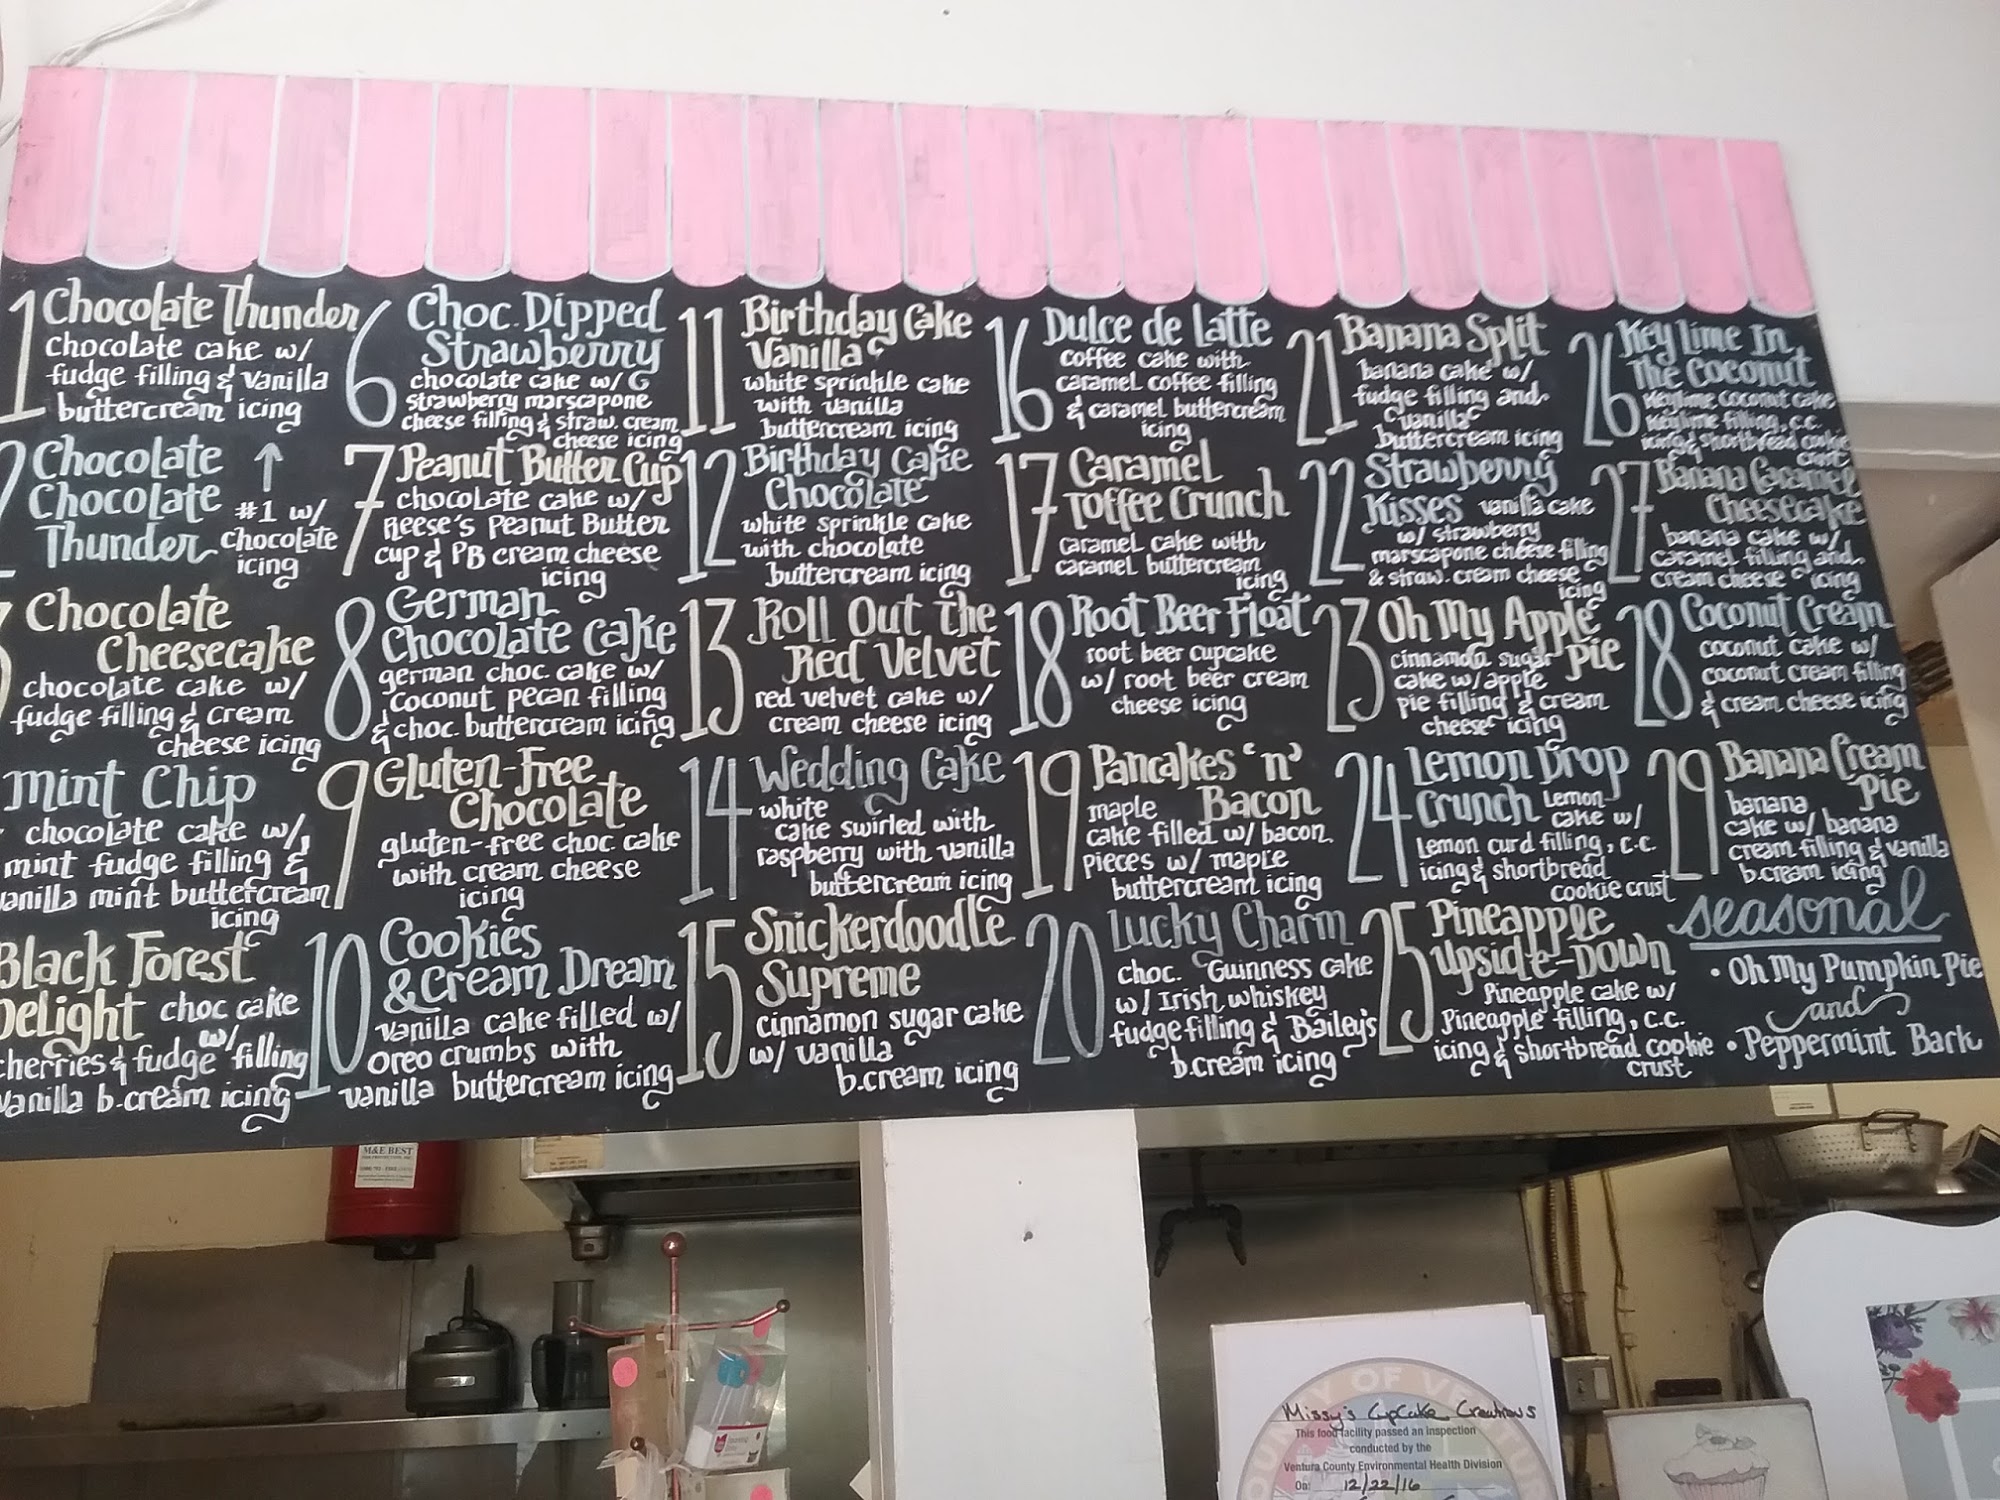 1 Chocolate Thunder
chocolate cake w/
fudge filling & vanilla
buttercream icing
2 Chocolate
Chocolate
Thunder
#1 w/
chocolate
icing
Chocolate
Cheesecake
chocolate cake w/
fudge filling & cream
cheese icing
Mint Chip
chocolate cake w/
mint fudge filling &
vanilla mint buttercream
icing
Black Forest
Delight choc cake
w/
cherries & fudge filling
vanilla b.cream icing
6 Choc. Dipped
Strawberry
chocolate cake w/
strawberry marscapone
cheese filling & straw. cream
cheese icing
7 Peanut Butter Cup
chocolate cake w/
Reese's Peanut Butter
cup & PB cream cheese
icing
8 German
Chocolate Cake
german choc. cake w/
coconut pecan filling
& choc. buttercream icing
9 Gluten-Free
Chocolate
gluten-free choc. cake
with cream cheese
icing
10 Cookies
& Cream Dream
vanilla cake filled w/
oreo crumbs with
vanilla buttercream icing
11 Birthday Cake
Vanilla
white sprinkle cake
with vanilla
buttercream icing
12 Birthday Cake
Chocolate
white sprinkle cake
with chocolate
buttercream icing
13 Roll Out the
Red Velvet
red velvet cake w/
cream cheese icing
14 Wedding Cake
white
cake swirled with
raspberry with vanilla
buttercream icing
15 Snickerdoodle
Supreme
cinnamon sugar cake
w/ vanilla
b.cream icing
16 Dulce de latte
coffee cake with
caramel coffee filling
& caramel buttercream
icing
17 Caramel
Toffee Crunch
caramel cake with
caramel buttercream
icing
18 Root Beer Float
root beer cupcake
w/ root beer cream
cheese icing
19 Pancakes 'n'
Bacon
maple
cake filled w/ bacon
pieces w/ maple
buttercream icing
20 Lucky Charm
choc. Guinness cake
w/ Irish whiskey
fudge filling & Bailey's
b.cream icing
21 Banana Split
banana cake w/
fudge filling and
vanilla
buttercream icing
22 Strawberry
Kisses vanilla cake
w/ strawberry
marscapone cheese filling
& straw. cream cheese
icing
23 Oh My Apple
Pie
cinnamon sugar
cake w/ apple
pie filling & cream
cheese icing
24 Lemon Drop
Crunch Lemon
cake w/
Lemon curd filling, c.c.
icing & shortbread
cookie crust
25 Pineapple
Upside-Down
Pineapple cake w/
Pineapple filling, c.c.
icing & shortbread cookie
crust
26 Key lime In
The Coconut
Keylime coconut cake
Keylime filling, c.c.
icing & shortbread cookie
crust
27 Banana Caramel
Cheesecake
banana cake w/
caramel filling and
cream cheese icing
28 Coconut Cream
coconut cake w/
coconut cream filling
& cream cheese icing
29 Banana Cream
Pie
banana
cake w/ banana
cream filling & vanilla
b.cream icing
seasonal
• Oh My Pumpkin Pie
and
• Peppermint Bark
M&E BEST
COUNTY OF VENTURA
Missy's CupCake Creations
This food facility passed an inspection
conducted by the
Ventura County Environmental Health Division
On: 12/22/16